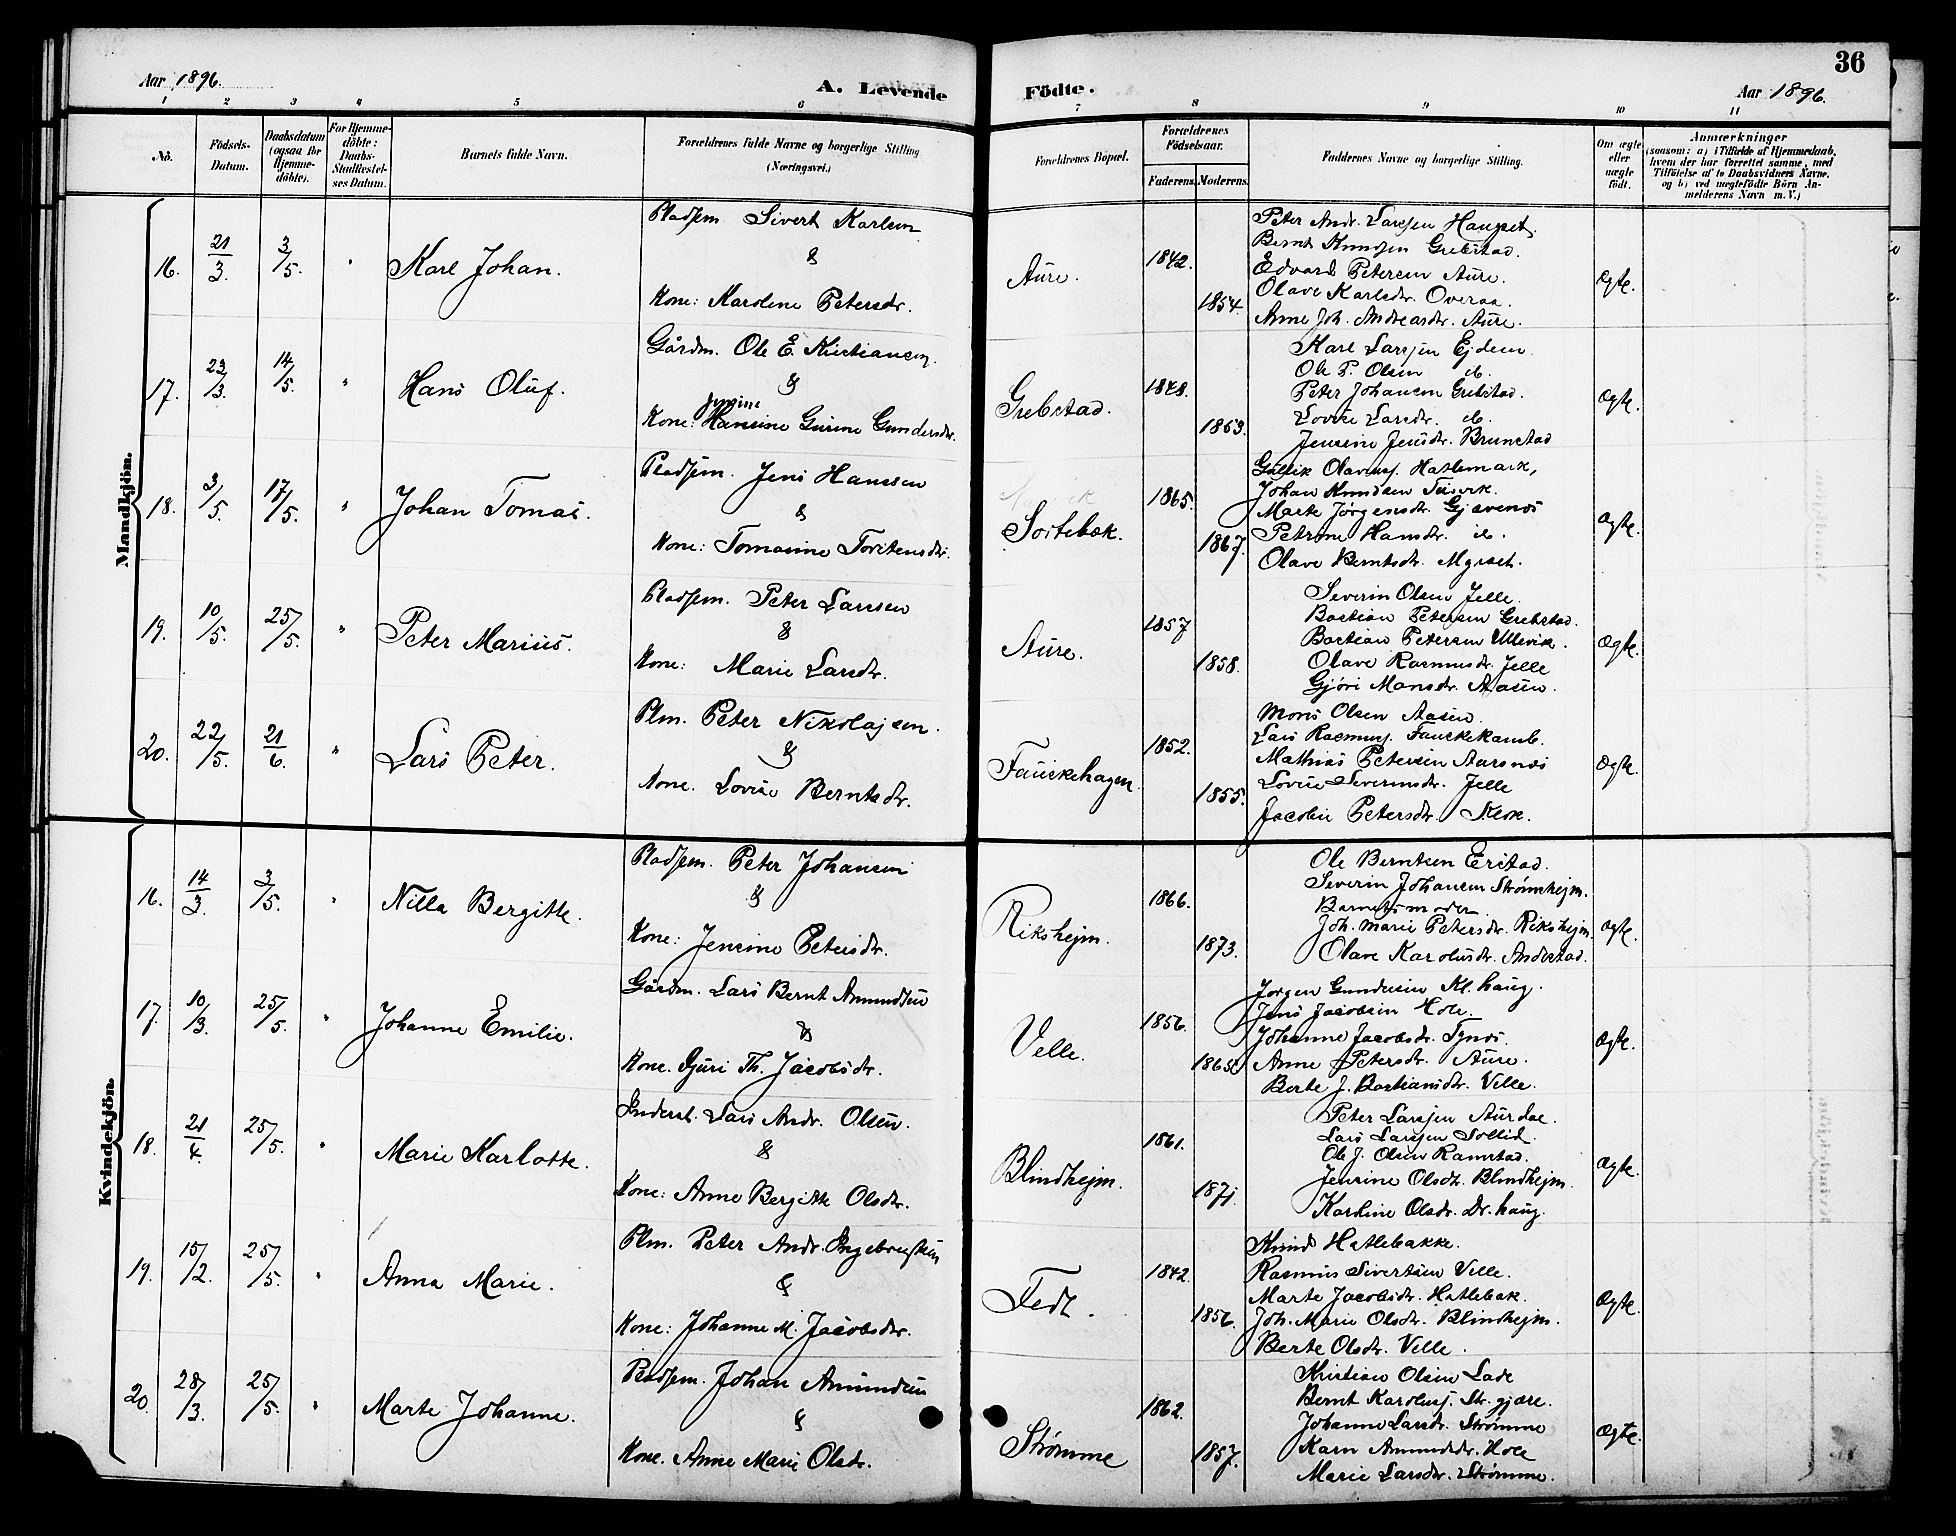 36
Aar 1896.
A. Levende Fødte.
Aar 1896.
1 2 3 4 5 6 7 8 9 10 11
No.
Fødsels-Datum.
Daabsdatum (ogsaa for Hjemmedøbte).
For Hjemmedøbte: Daabs-Stadfæstelses Datum.
Barnets fulde Navn.
Forældrenes fulde Navne og borgerlige Stilling (Næringsvei.)
Forældrenes Bopæl.
Forældrenes Fødselsaar.
Faderens. Moderens.
Faddernes Navne og borgerlige Stilling.
Om ægte eller uægte født.
Anmærkninger
(saasom: a) i Tilfælde af Hjemmedaab, hvem der har forrettet samme, med Tilføielse af to Daabsvidners Navne, og b) ved uægtefødte Børn Anmelderens Navn m. V.)
Mandkjön.
16. 21/3 3/5. " Karl Johan.
Pladsm. Sivert Karlsen
&
Kone: Karoline Petersdr.
Aure. 1842. 1854.
Peter Andr. Larssen Haugset.
Bernt Knudsen Grebstad.
Edvard Petersen Aure.
Olave Karlsdr. Overaa.
Anne Joh. Andreasdr. Aure.
Ægte.
17. 23/3. 14/5. " Hans Oluf.
Gårdm. Ole E. Kristiansen.
&
Jensine
Kone: Hansine Gurine Gundersdr.
Grebstad. 1848. 1863.
Karl Larssen Ejdem.
Ole P. Olsen ib.
Peter Johansen Grebstad.
Lovise Larsdr. ib.
Jensine Jensdr. Brunstad
Ægte.
18. 3/5. 17/5. " Johan Tomas.
Pladsm. Jens Hanssen
&
Kone: Tomasine Torstensdr.
Sortebæk. 1865. 1867.
Gullik Olavusj. Hatlemark,
Johan Knudsen Tusvik.
Marte Jørgensdr. Gjævenes
Petrine Hansdr. ib.
Olave Berntsdr. Myrset.
Ægte.
19. 10/5. 25/5. " Peter Marius.
Pladsm. Peter Larssen
&
Kone: Marie Larsdr.
Aure. 1857 1858.
Severin Olsen Jelle.
Bastian Petersen Grebstad.
Bastian Petersen Ullevik.
Olave Rasmusdr. Jelle
Gjøri Monsdr. Aasen.
Ægte.
20. 22/5. 21/6. " Lars Peter.
Plm. Peter Nikolajsen.
&
Kone. Lovise Berntsdr.
Fauskehagen. 1852. 1855.
Mons Olsen Aasen.
Lars Rasmusj. Fauskekamb.
Mathias Petersen Aarsnes
Lovise Severinsdr. Jelle
Jacobie Petersdr. Klok.
Ægte.
Kvindekjön.
16. 14/3. 3/5. " Nilla Bergitte.
Pladsm. Peter Johansen
&
Kone: Jensine Petersdr.
Rikshejm. 1866. 1873.
Ole Berntsen Erstad.
Severin Johansen Strømshejm.
Barnets moder.
Joh. Marie Petersdr. Rikshejm.
Olave Karolusdr. Andestad.
Ægte.
17. 10/3. 25/5. " Johanne Emilie.
Gårdm. Lars Bernt Amundsen
&
Kone. Gjuri Th. Jacobsdr.
Velle. 1856. 1865.
Jørgen Gundersen Kl.haug.
Jens Jacobsen Hole.
Johanne Jacobsdr. Tynes.
Anne Petersdr. Aure.
Berte J. Bastiansdr. Velle.
Ægte.
18. 21/4. 25/5. " Marie Karlotte.
Inderst. Lars Andr. Olsen.
&
Kone: Anne Bergitte Olsdr.
Blindhejm. 1861. 1871.
Peter Larssen Aurdal
Lars Larssen Sollid.
Ole J. Olsen Ramstad.
Jensine Olsdr. Blindhejm.
Karoline Olsdr. Dr.haug.
Ægte.
19. 15/2. 25/5. " Anna Marie.
Plm. Peter Andr. Ingebrigtsen
&
Kone: Johanne M. Jacobsdr.
Fedt. 1842. 1856.
Knud Hatlebakke.
Rasmus Sivertsen Velle.
Marte Jacobsdr. Hatlebak.
Joh. Marie Olsdr. Blindhejm.
Berte Olsdr. Velle.
Ægte.
20. 28/3. 25/5. " Marte Johanne.
Pladsm. Johan Amundsen
&
Kone. Anne Marie Olsdr.
Strømme 1862. 1857.
Kristian Olsen Lade
Bernt Karolusj. Str.gjære.
Johanne Larsdr. Strømme
Karn Amundsdr. Hole
Marie Larsdr. Strømme.
Ægte.